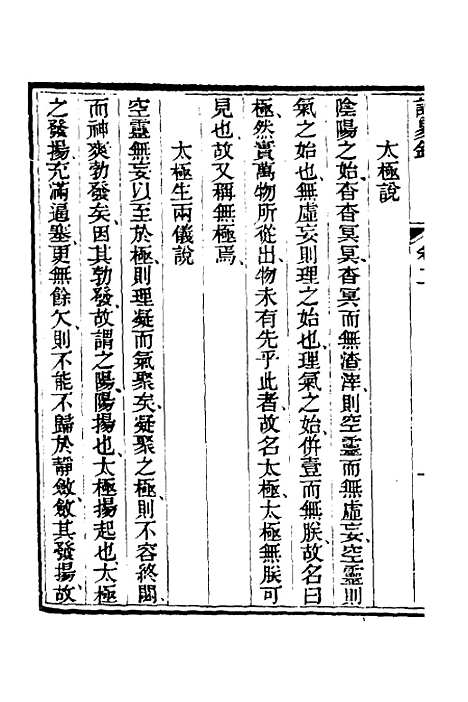 太極說
陰陽之始杳杳冥冥杳冥而無渣滓則空靈而無虛妄空靈則
氣之始也無虛妄則理之始也理氣之始併壹而無朕故名曰
極然實萬物所從出物未有先乎此者故名太極太極無朕可
見也故又稱無極焉
太極生兩儀說
空靈無妄以至於極則理凝而氣聚矣凝聚之極則不容終閟
而神爽勃發矣因其勃發故謂之陽陽揚也太極揚起也太極
之發揚充滿逼塞更無餘欠則不能不歸於靜斂斂其發揚故